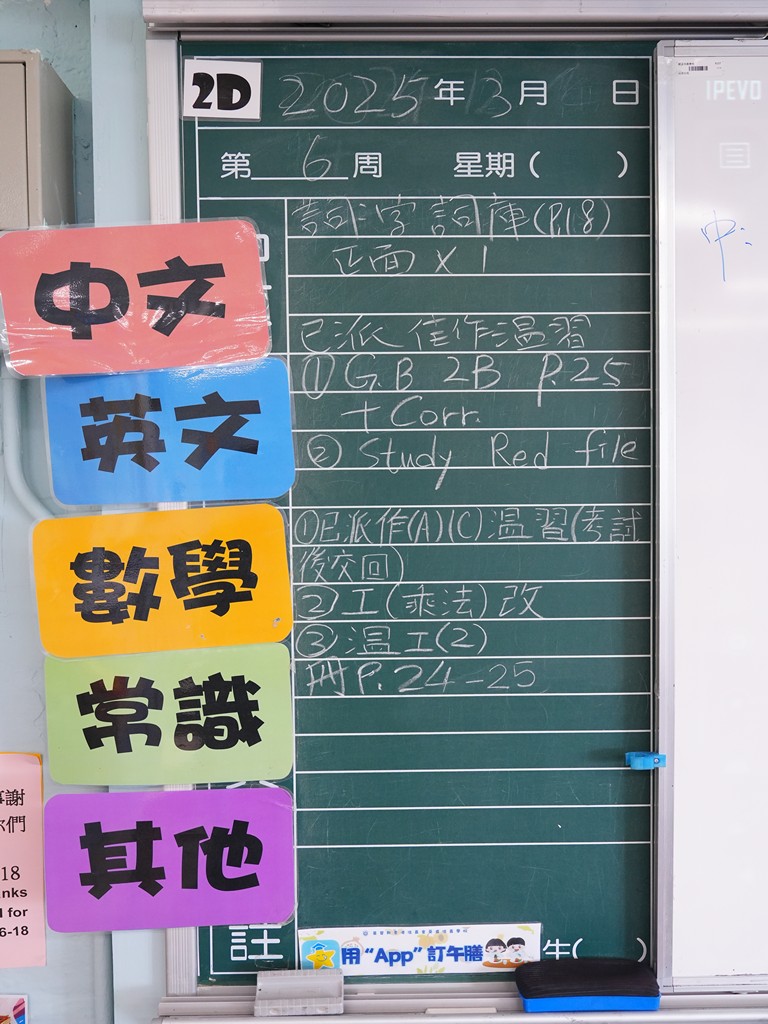 2D 2025 年 3 月 日
第 6 周 星期( )
詞: 字詞庫(P.18)
正面 X 1
中文
已派 佳作溫習
① G.B 2B P.25
+ Corr.
英文
② Study Red file
①已派作(A)(C)溫習(考試
後交回)
數學
②工(乘法)改
③溫工(2)
冊P.24-25
常識
其他
註
用“App”訂午膳
生( )
IPEVO
中:
謝
你們
18
anks
l for
6-18